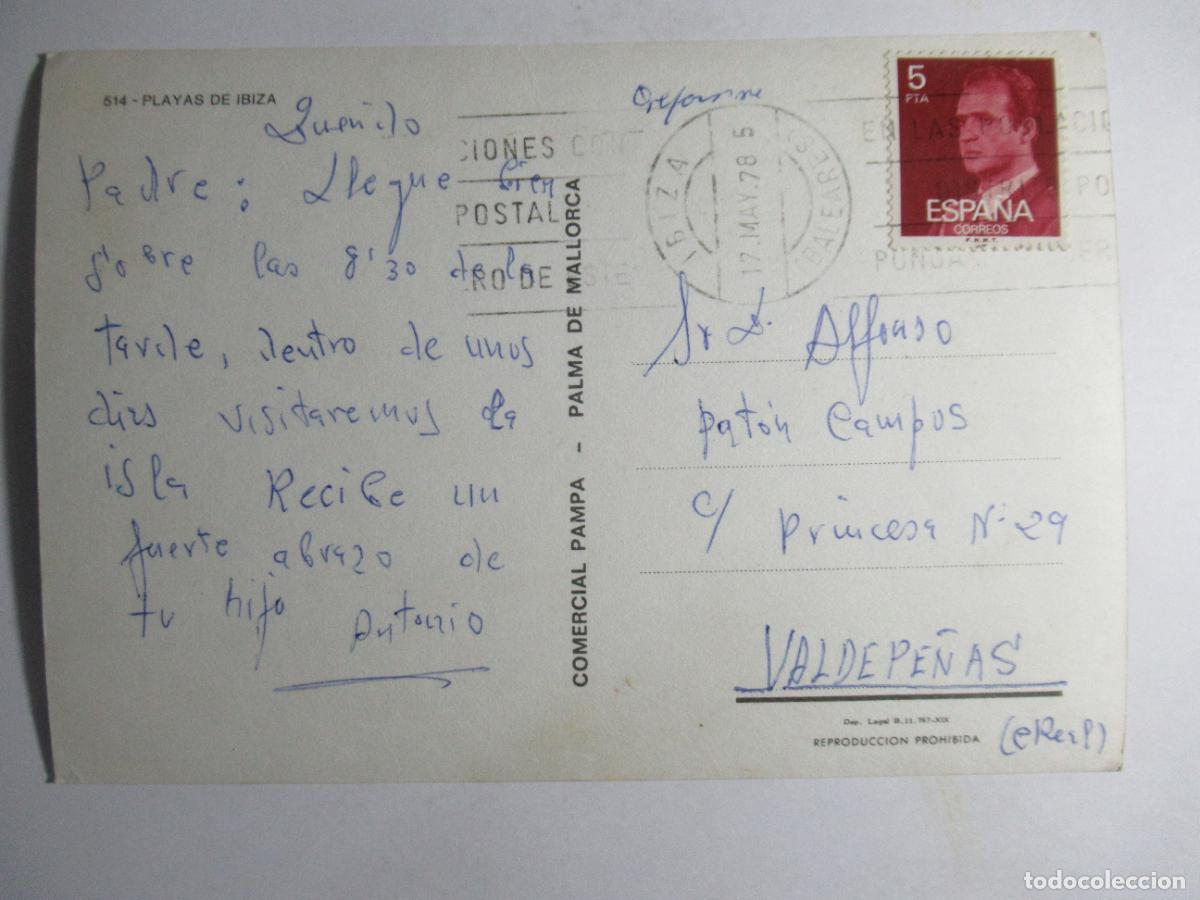 514 - PLAYAS DE IBIZA
Querido
Padre: Llegue bien
sobre las 8'30 de la
tarde, dentro de unos
dias visitaremos la
isla Recibe un
fuerte abrazo de
tu hijo Antonio
COMERCIAL PAMPA - PALMA DE MALLORCA
CIONES CONT
POSTAL
RO DE
IBIZA
17.MAY.78 5
(BALEARES)
EN LAS
5
PTA
ESPAÑA
CORREOS
F.N.M.T.
Sr D. Alfonso
Patón Campos
c/ Princesa Nº 29
VALDEPEÑAS
(CReal)
Dep. Legal B.11.767-XIX
REPRODUCCION PROHIBIDA
todocoleccion